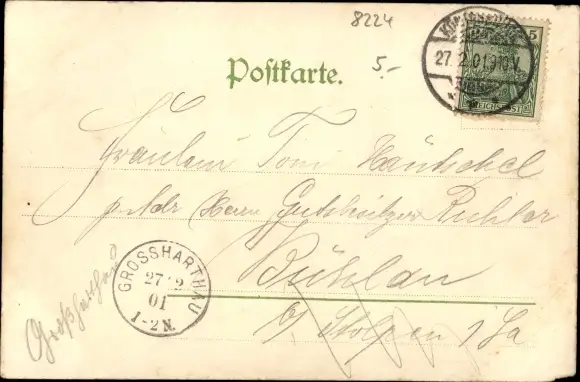 8224
5.-
Postkarte.
5
27.2.01.9-10V.
REICHSPOST
Fräulein Toni Häntschel
p. Adr. Herrn Gutsbesitzer Richter
Bühlau
b/ Stolpen i/Sa
GROSSHARTHAU
27 2
01
1-2 N.
Großharthau